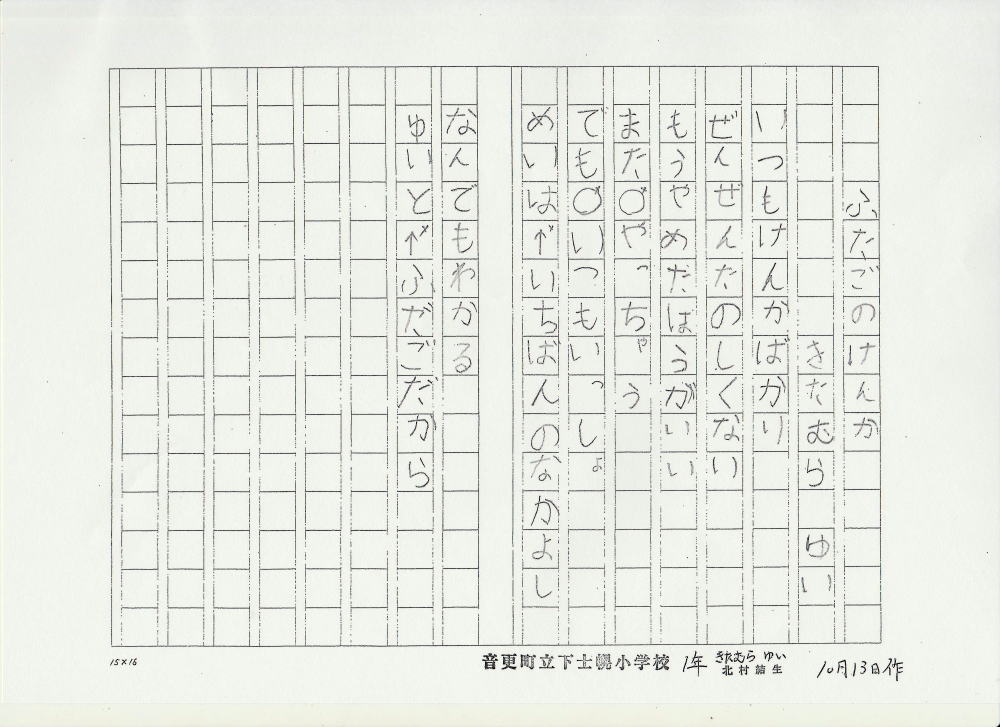 ふたごのけんか
きたむら ゆい
いつもけんかばかり
ぜんぜんたのしくない
もうやめだはうがいい
また〇やっちゃう
でも〇いつもいっしょ
めいは↑いちばんのなかよし
なんでもわかる
ゆいと↑ふだごだから
15×16
音更町立下士幌小学校 1年 きたむら ゆい
北村結生
10月13日作